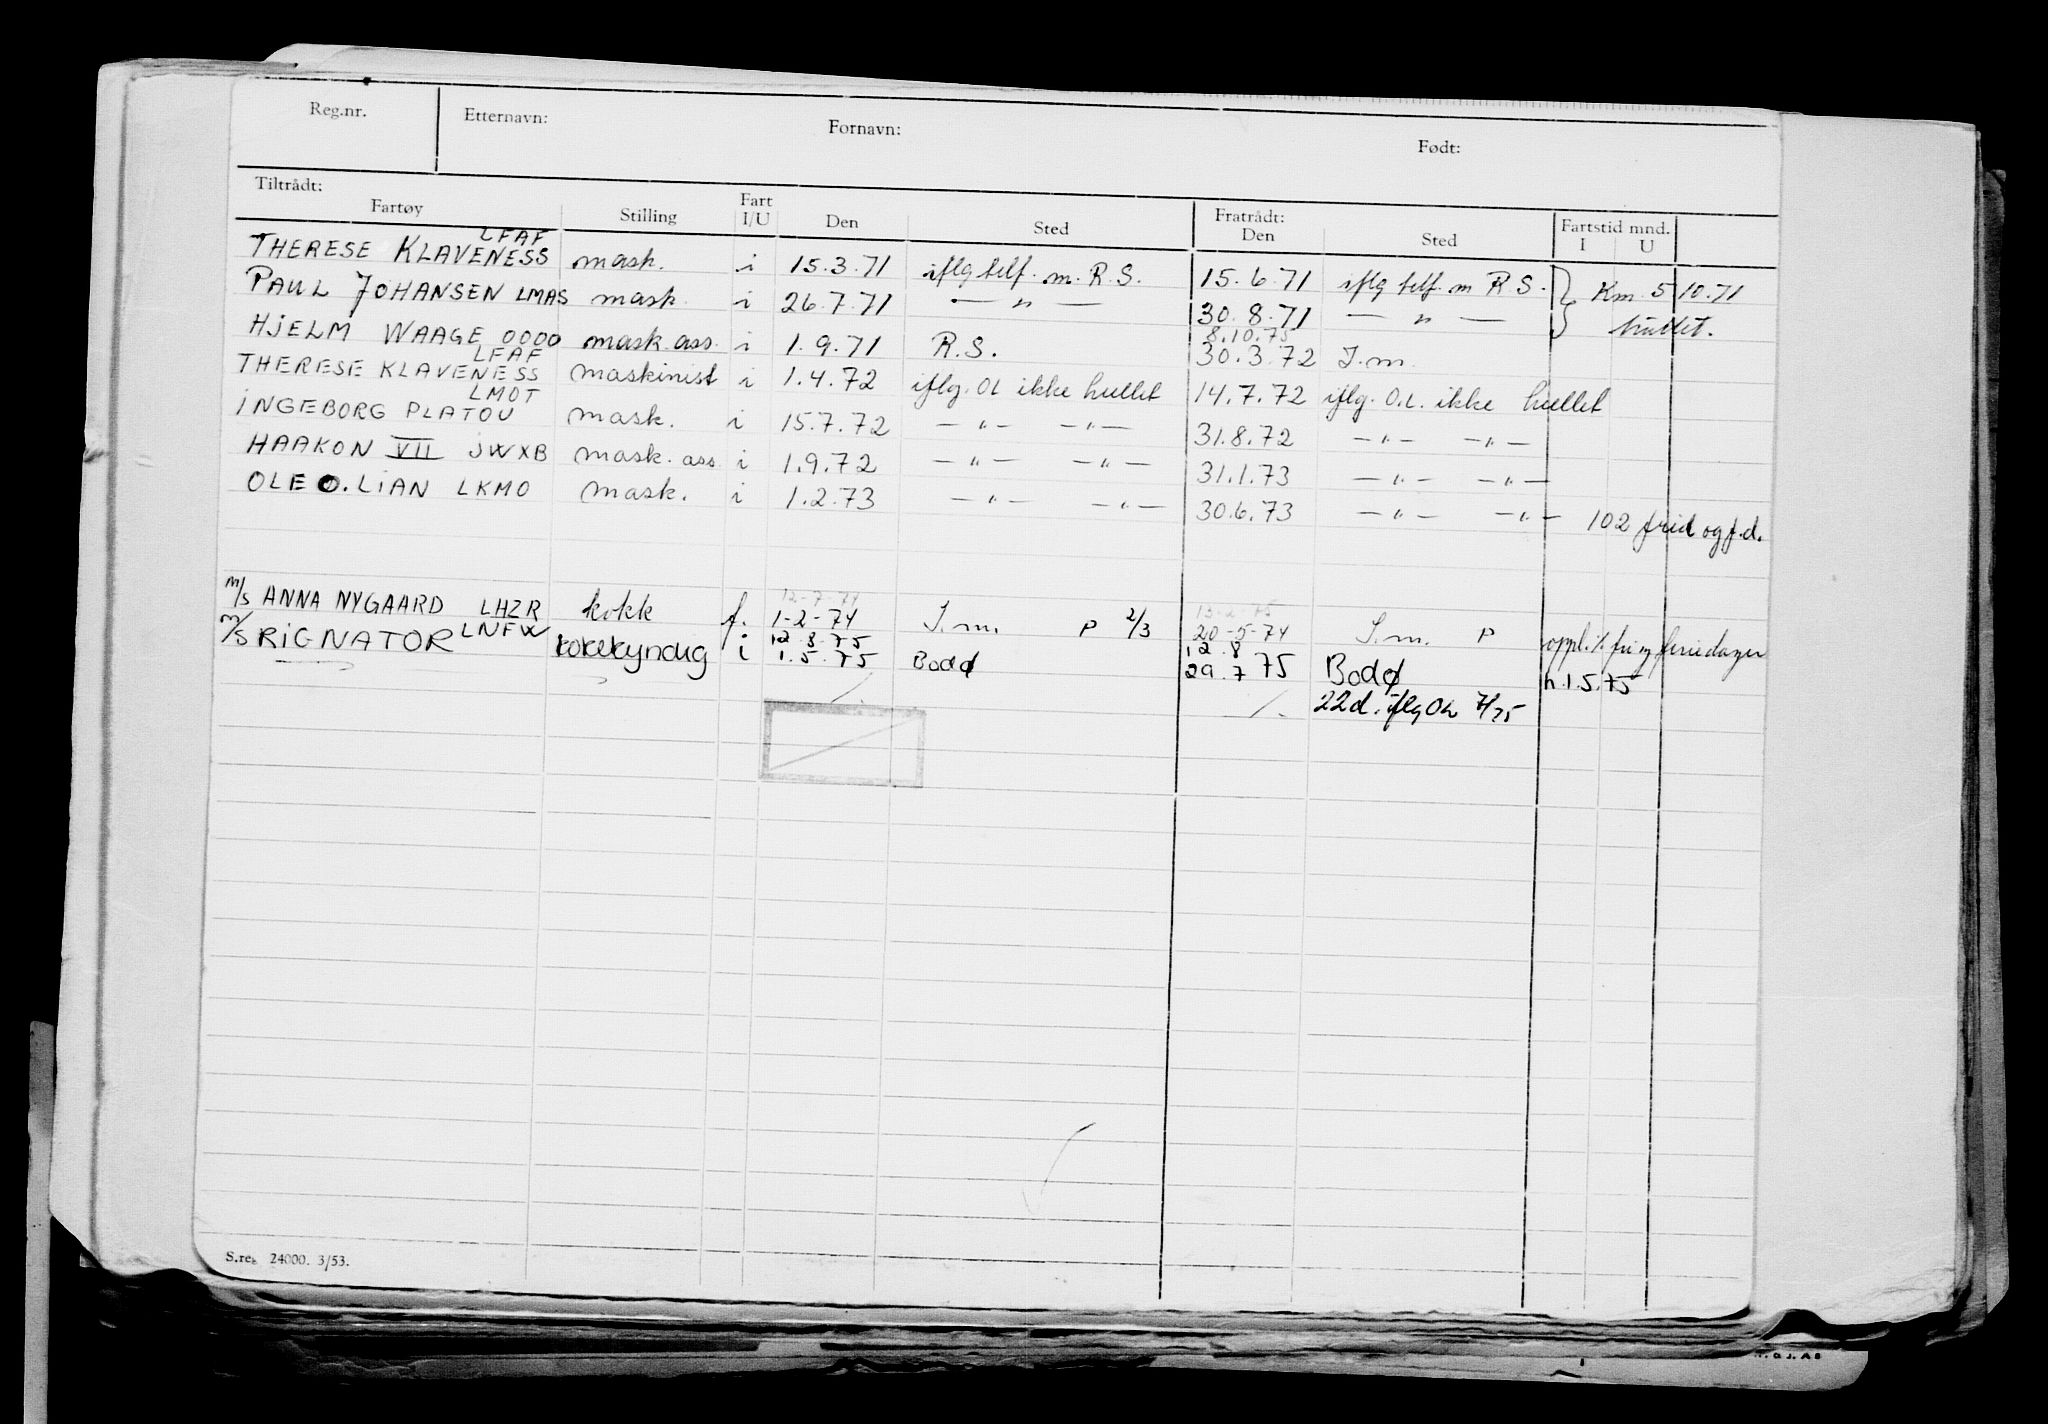 Reg.nr. Etternavn: Fornavn: Født:
Tiltrådt: Fratrådt:
Fartøy Stilling Fart I/U Den Sted Den Sted Fartstid mnd. I U
THERESE KLAVENESS LFAF mask. i 15.3.71 iflg telf. m. R.S. 15.6.71 iflg telf. m R S. } Km. 5 10.71
PAUL JOHANSEN LMAS mask. i 26.7.71 — " — 30.8.71 — " — hullet.
8.10.75
HJELM WAAGE 0000 mask.ass. i 1.9.71 R.S. 30.3.72 I.m.
THERESE KLAVENESS LFAF maskinist i 1.4.72 iflg. OL ikke hullet 14.7.72 iflg. O.L. ikke hullet
INGEBORG PLATOU LMOT mask. i 15.7.72 — " — — " — 31.8.72 — " — — " —
HAAKON VII JWXB mask. ass i 1.9.72 — " — — " — 31.1.73 — " — — " —
OLE O. LIAN LKMO mask. i 1.2.73 — " — — " — 30.6.73 — " — — " — 102 frid og f.d.
12-7-74 13-2-75
m/s ANNA NYGAARD LHZR kokk f. 1-2-74 I.m. P 2/3 20-5-74 I.m. P oppl. fri og feriedager
12.8.75 12.8
m/s RIGNATOR LNFW kokekyndig i 1.5.75 Bodø 29.7 75 Bodø h.1.5.75
22d. iflg OL 7/75
S.reg 24000. 3/53.